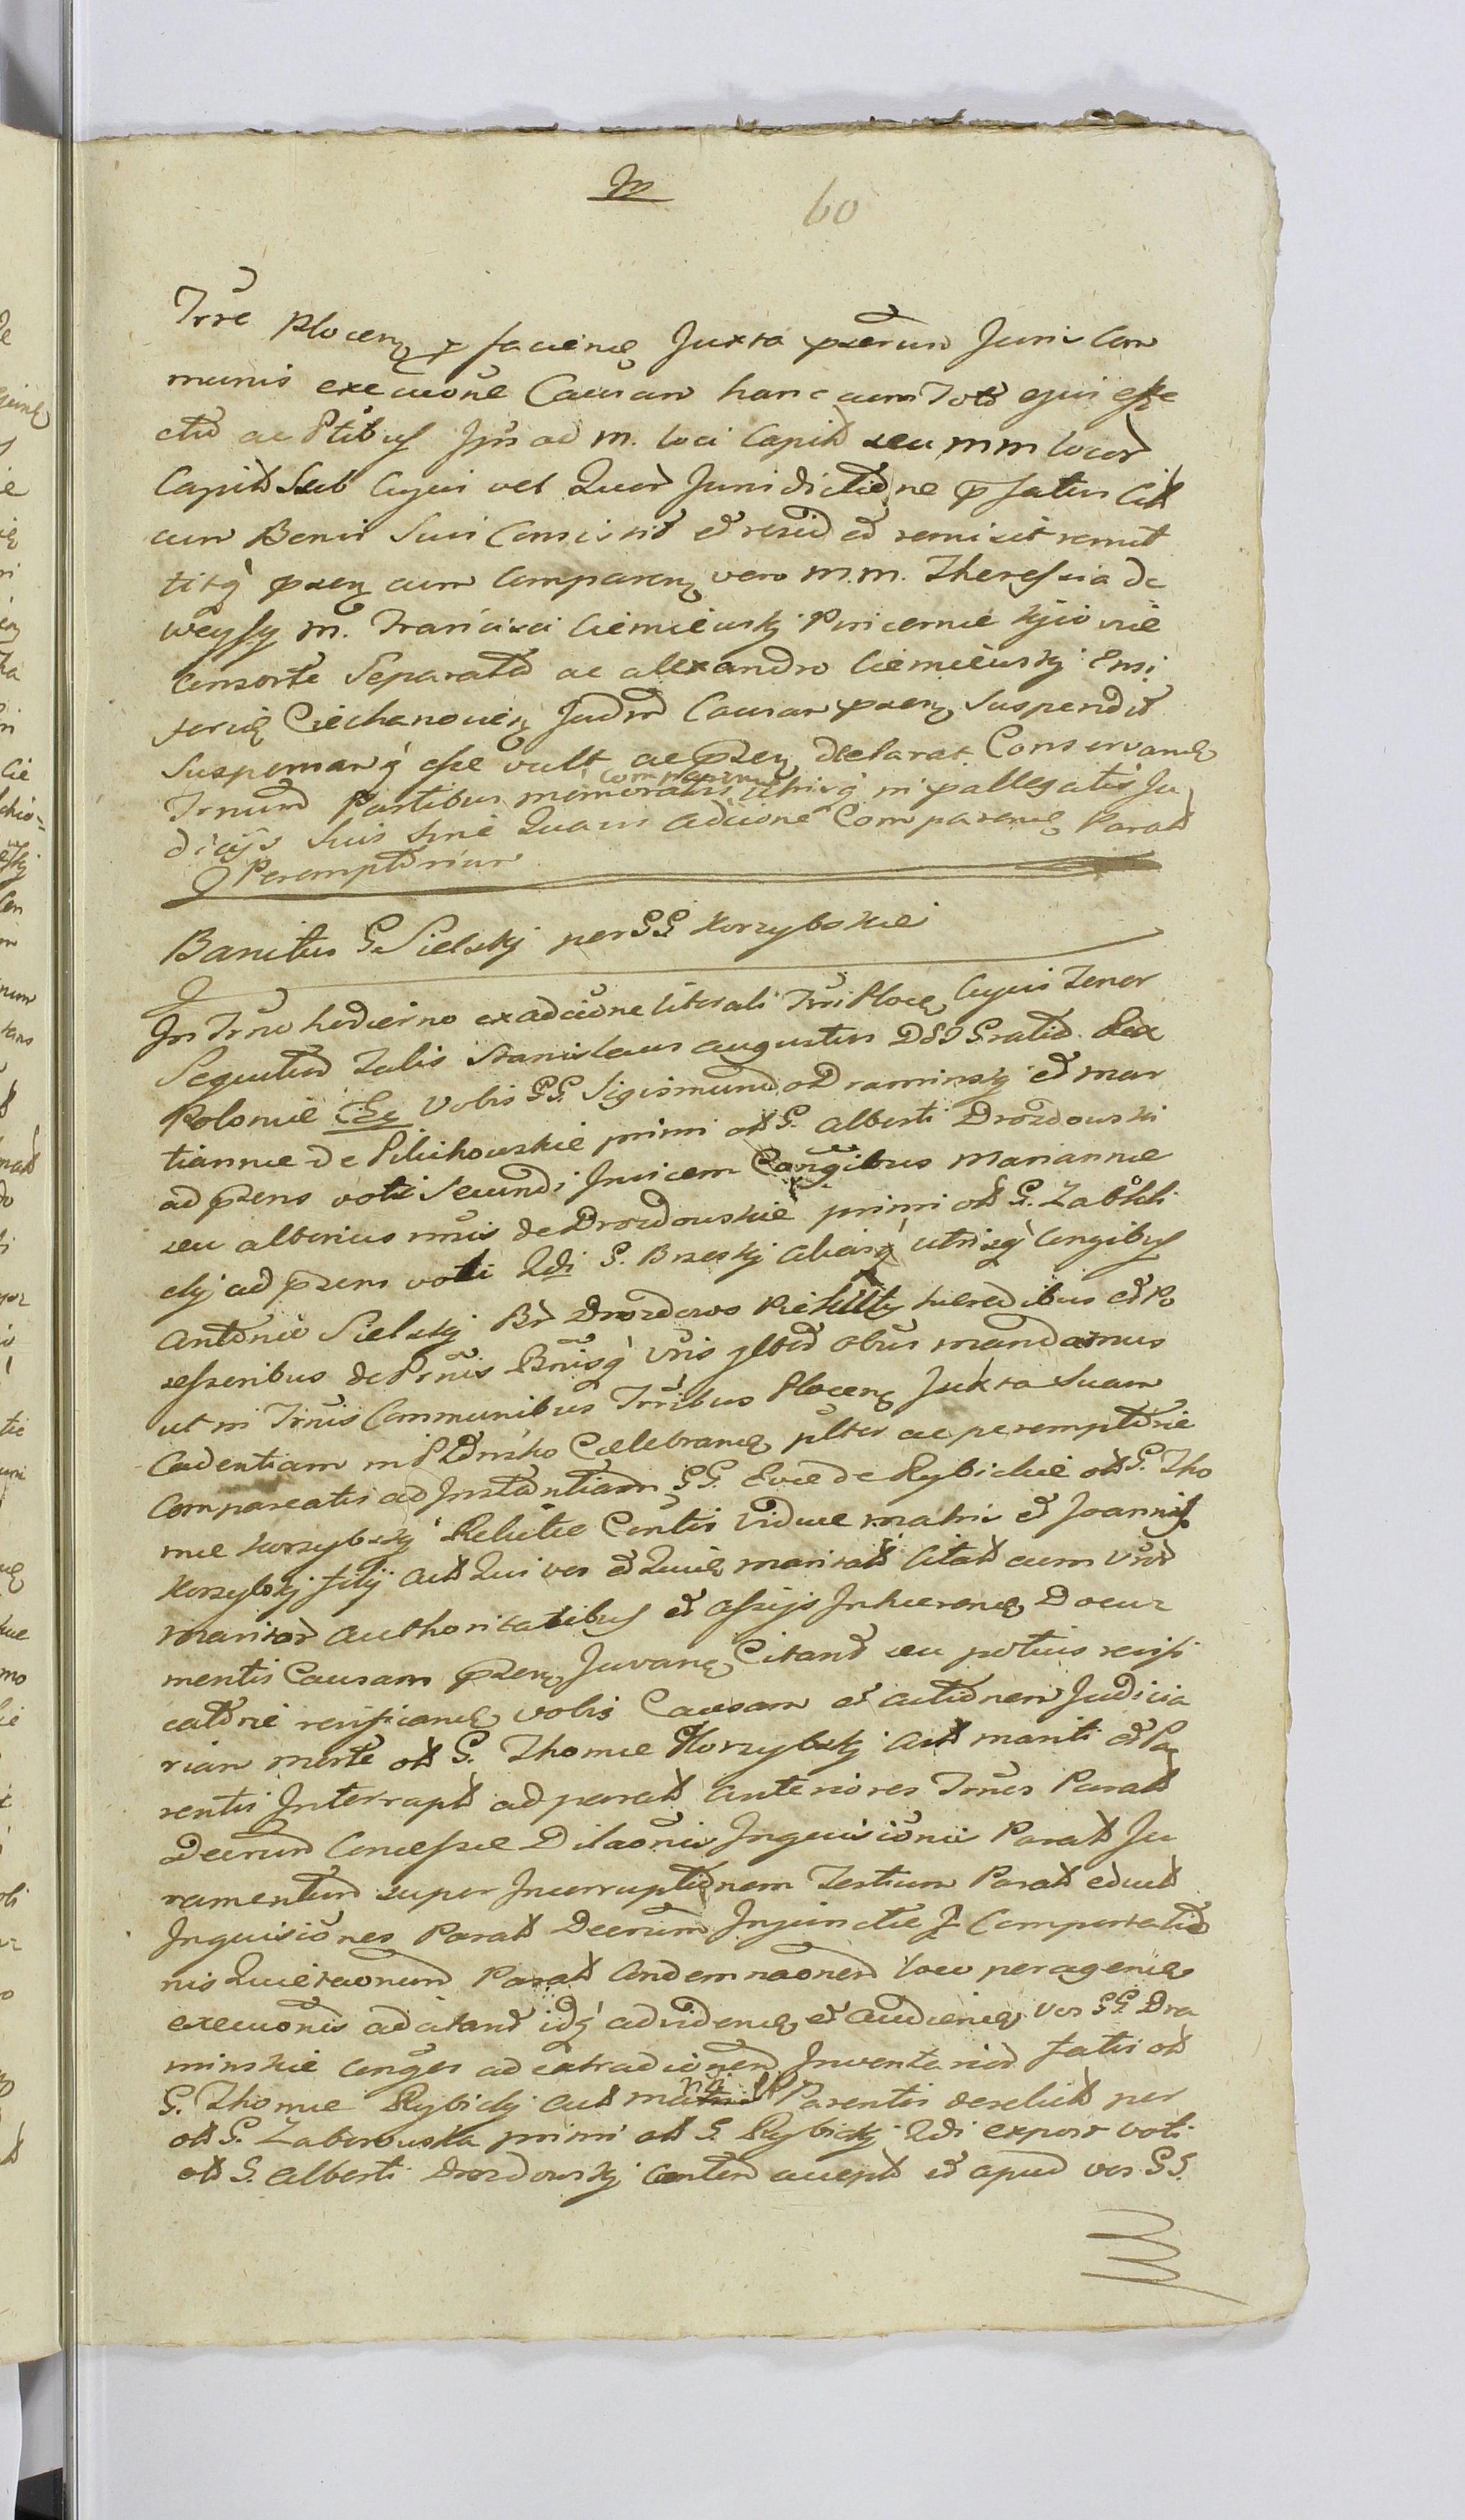 60
Trre Plocen p facienḋ Juxta pserm Juris Com
munis execuone Causam hanc cum Toto ejus effe
ctu ac Ptibus Ipis ad M. loci Capit seu MM locor
Capit Sub Cujus vel Quor Jurisdictione pfatus Cit
cum Bonis Suis Consistit et resid et remisit remit
titq psen cum Comparen vero M.M. Theressia de
Weyssy M. Francisci Ciemiewskj Pincernæ Kijoviæ
Consorte Separata ac Alexandro Ciemiewskj Ensi
feriq Ciechanovien Judm Causam psen Suspendit
Suspensamq esse vult ac psen declarat Conservanḋ
Trnum Partibus memoratis comparenḋ Utrisq in pallegatis Ju
dicijs Suis Sine Quavis adcione Comparenḋ Parat
Peremptorium
Banitus G. Sielskj per GG Korzybskie
In Trno hodierno ex adcione literali Trri Ploceñ Cujus Tenor
Sequitur Talis Stanislaus Augustus DEI Gratia Rex
Poloniæ Etc Vobis GG. Sigismundo Draminskj et Mar
tiannæ de Pilichowskie primi olt G. Alberti Drozdowski
ad psens voti Secundi Invicem Conjugibus Mariannæ
seu alterius nois de Drozdowskie primi olt G. Zabokli
ckj ad psens voti 2di G. Brzeskj aliasq utrisq Congibus
Antonio Sielskj Br Drozdowo Hæredibus et Po
ssessoribus de Prnis Bnisq Vris gltr obus mandamus
ut in Trnis Communibus Trribus Plocen Juxta Suam
Cadentiam in Płońsko Cælebranḋ pltr ac peremptorie
Compareatis ad Instantiam GG. Evæ de Rybickie olt G. Tho
mæ Korzybskj Relictæ Contis Viduæ matris et Joannis
Korzybskj filij Act Qui vos et Quiq maritat Citat cum Vror
Maritor Authoritatibus et assijs Inhærenḋ Docu
mentis Causam psen Juvanḋ Citant seu potius reassi
catorie reassicanḋ vobis Causam et actionem Judicia
riam morte olt G. Thomæ Korzybskj Act mariti et Pa
rentis Interrupt ad parat anteriores Trnos Parat
Decrum Concessæ Dilaonis Inquisiōnis Parat Ju
ramentum super Incorruptionem Testium Parat educt
Inquisiōnes Parat Decrum Injunctæ Comportatio
nis Quietaonum Parat Condemnaonem loco peragenḋ
execuonis adcitant idq ad videnḋ et audienḋ vos GG Dra
minskie conges ad extradionem Inventarior fatis olt
G. Thomæ Rybickj Act Parentis derelict per
olt G. Zaborowska primi olt G. Rybickj 2di expost voti
olt G. Alberti Drozdowskj Contem accept et apud vos GG.